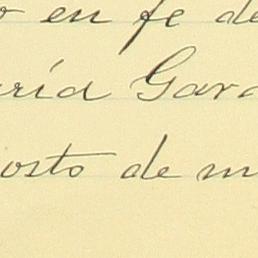 o en fe de
ría Gara
osto de m